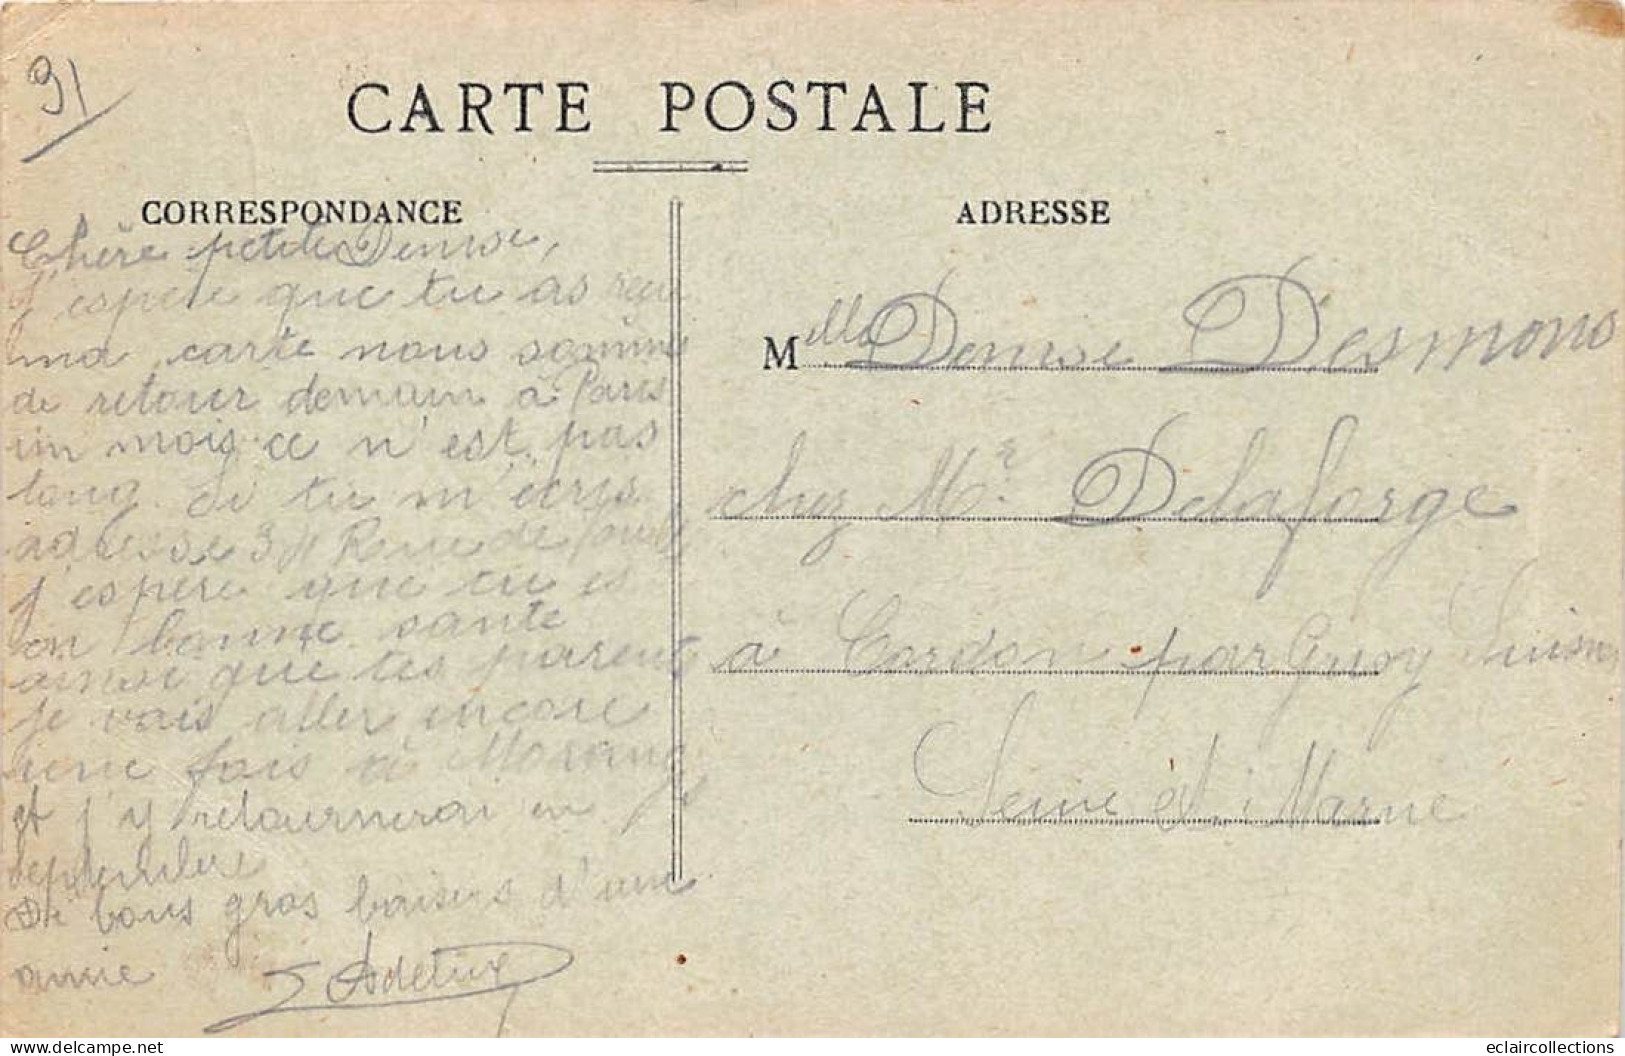 91
CARTE POSTALE
CORRESPONDANCE
Chère petite Denise,
J'espère que tu as reçu
ma carte nous somme
de retour demain à Paris
un mois ce n'est pas
long. Si tu m'écris
adresse 3 Rue de
j'espère que tu es
en bonne santé
ainsi que tes parents
je vais aller encore
une fois à Morang
et j'y retournerai en
septembre
De bons gros baisers d'une
amie
ADRESSE
Melle Denise Desmons
chez Mr Delaforge
à Cordon par Grisy Suisnes
Seine et Marne
delcampe.net
eclaircollections